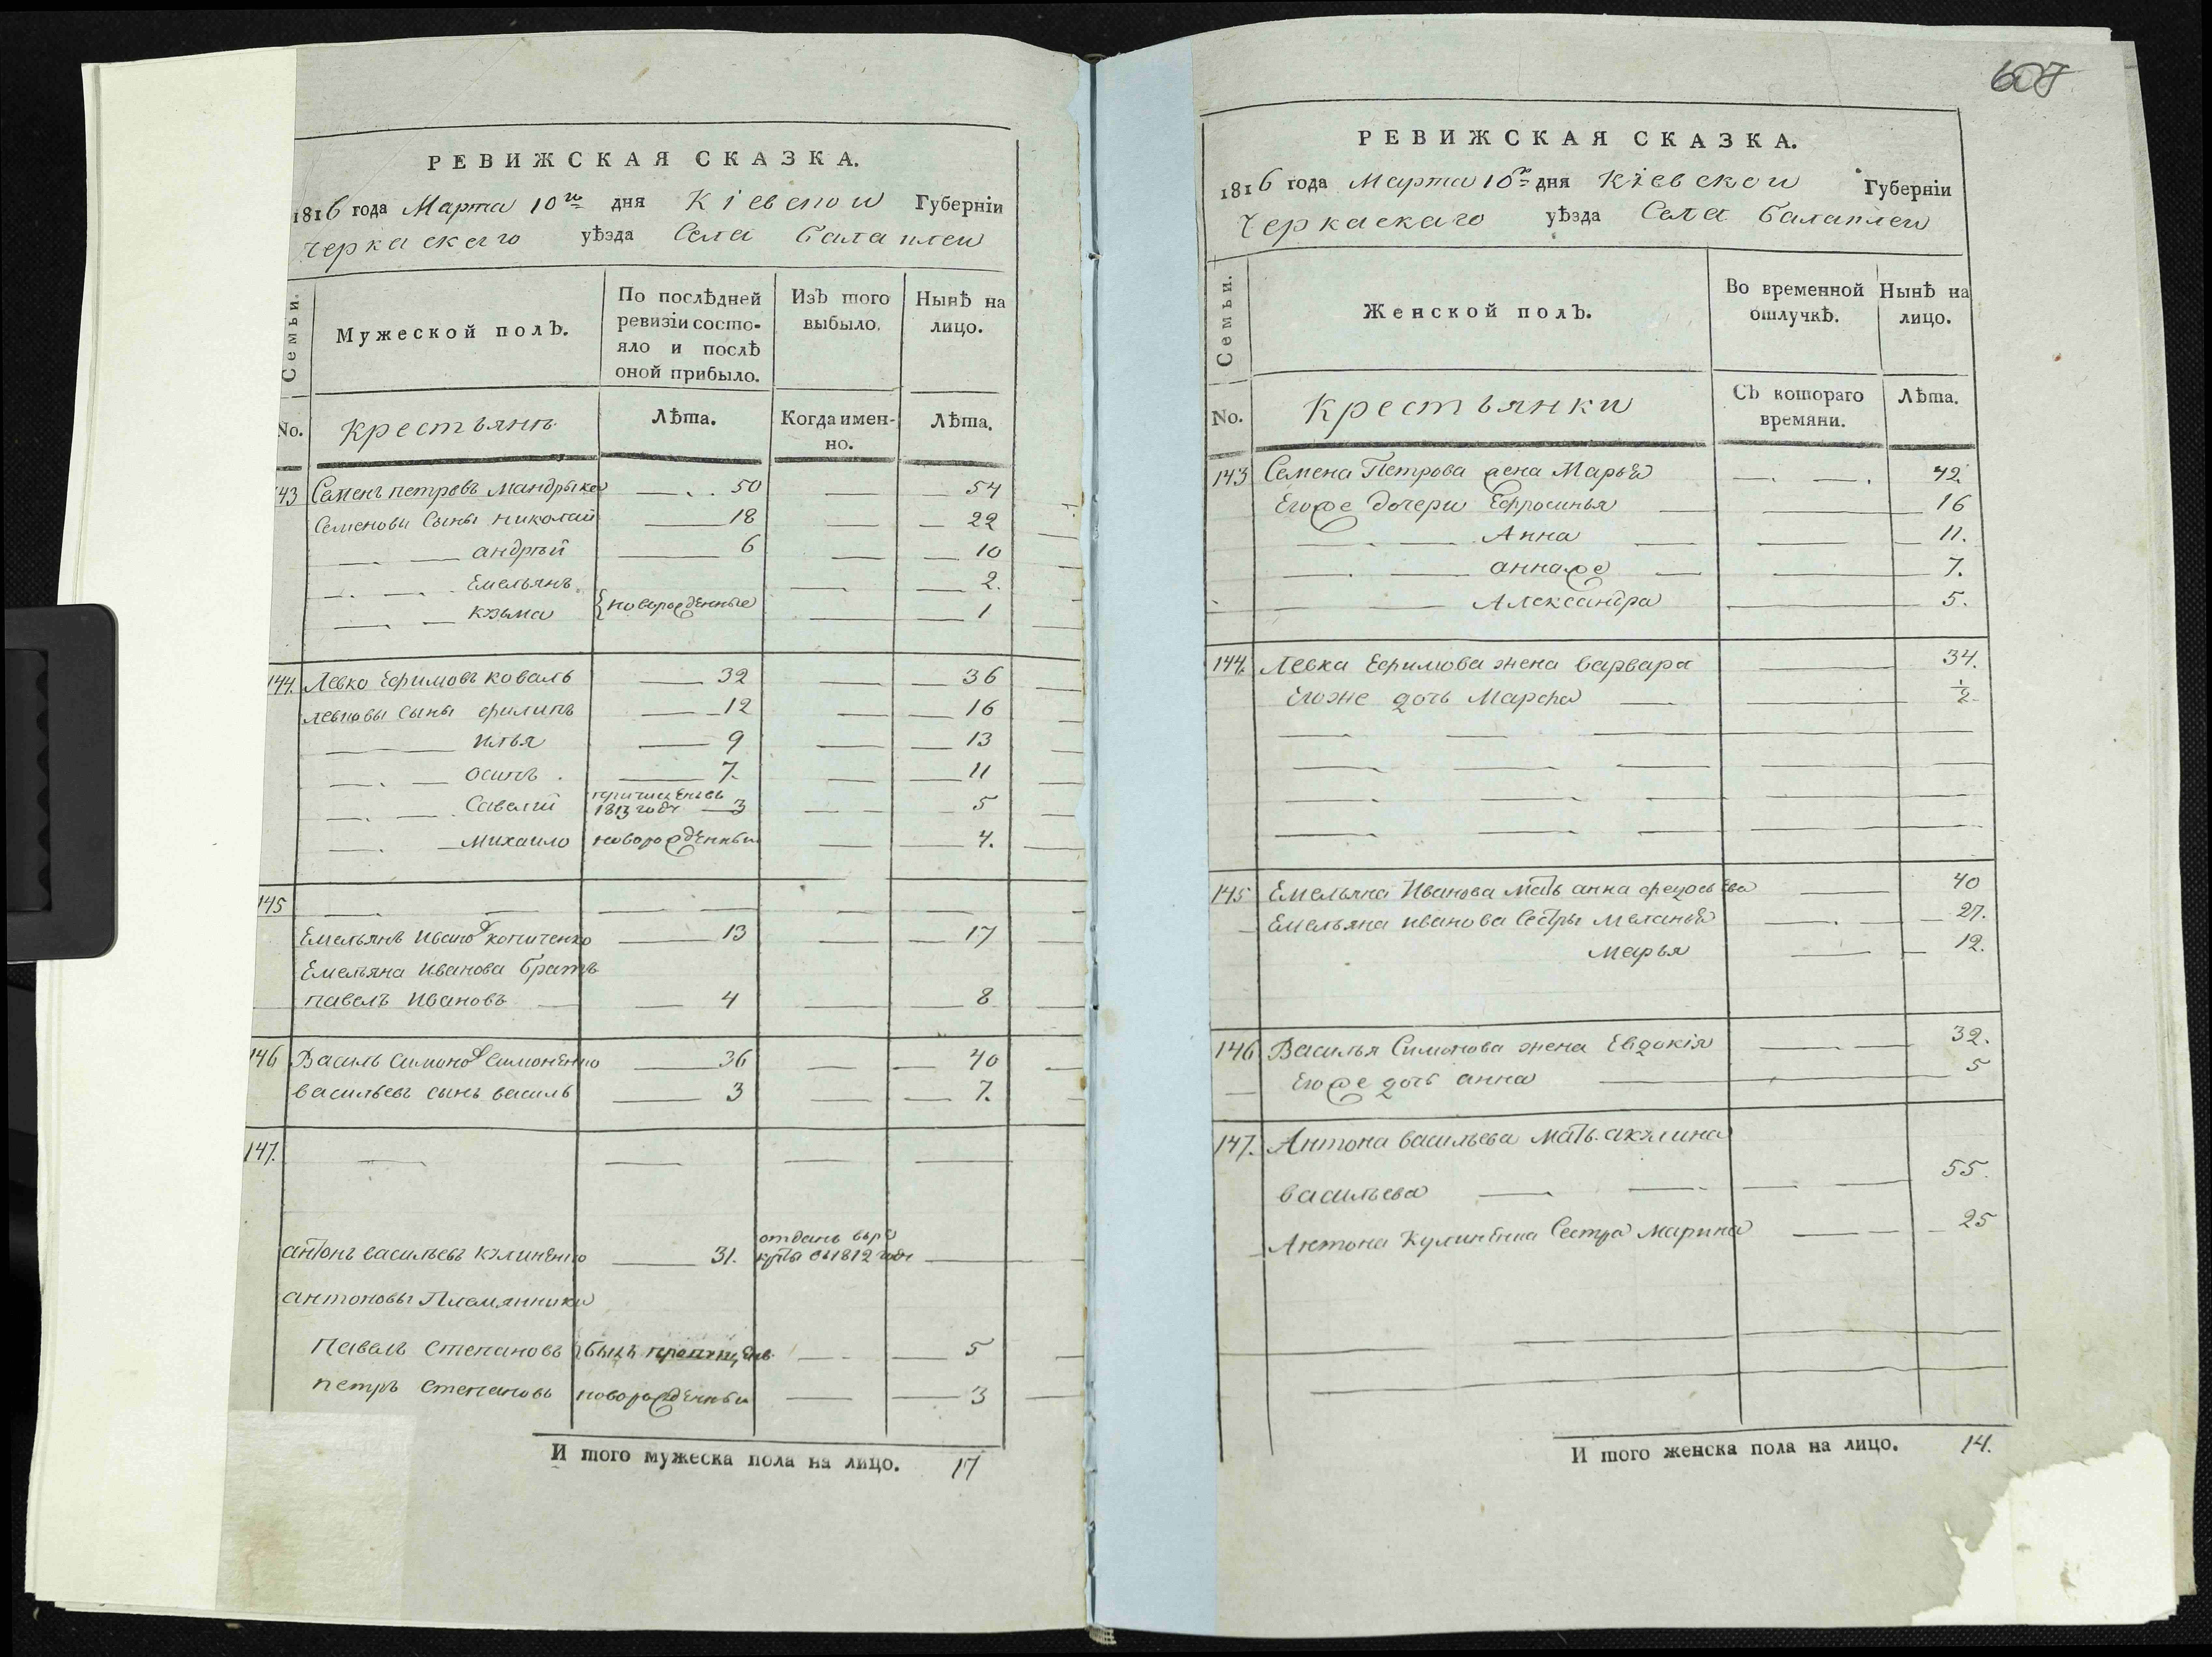 РЕВИЖСКАЯ СКАЗКА.
1816 года Марта 10го дня Кіевской Губерніи
Черкаскаго уѣзда Села Балаклеи
Семьи.
Мужеской полЪ.
По послѣдней ревизіи состо-
яло и послѣ
оной прибыло.
ИзЪ того
выбыло.
Нынѣ на
лицо.
No.
Крестьянъ
Лѣта.
Когда имен-
но.
Лѣта.
143 Семенъ петровъ мандрыка 50 54
Семенови Сыны николай 18 22
андрѣй 6 10
Емельянъ 2.
кузьма новорожденные 1
144. Левко Ефимовъ коваль 32 36
левковы сыны филипъ 12 16
Илья 9 13
осипъ 7. 11
Савелий
1813 году 3 5
михаило новорожденный 4.
145
Емельянъ Иванов копиченко 13 17
Емельяна Иванова братъ
павелъ Ивановъ 4 8
146 Василь Симонов Симоненко 36 40
васильевъ сынъ василь 3 7.
147.
антонъ васильевъ кулиненко 31. отданъ въре
круты въ 1812 году
антоновы Племянники
Павелъ Степановъ былъ пропущенъ 5
петръ Степановъ новорожденный 3
И того мужеска пола на лицо. 17
607
РЕВИЖСКАЯ СКАЗКА.
1816 года Марта 10го дня Кіевской Губерніи
Черкаскаго уѣзда Села Балаклеи
Семьи.
Женской полЪ.
Во временной
отлучкѣ.
Нынѣ на
лицо.
No.
Крестьянки
СЪ котораго
времяни.
Лѣта.
143 Семена Петрова жена Марья 42.
Егоже дочери Ефросинья 16
Анна 11.
аннаже 7.
Александра 5.
144. Левка Ефимова жена варвара 34.
Егоже дочь Марфа 1/2
145 Емельяна Иванова мать анна федосьева 40
Емельяна иванова Сестры меланья 27.
марья 12.
146 Василья Симонова жена Евдокія 32.
Егоже дочь анна 5
147. Антона васильева мать акулина
васильева 55.
Антона Кулиненка Сестра марина 25
И того женска пола на лицо. 14.